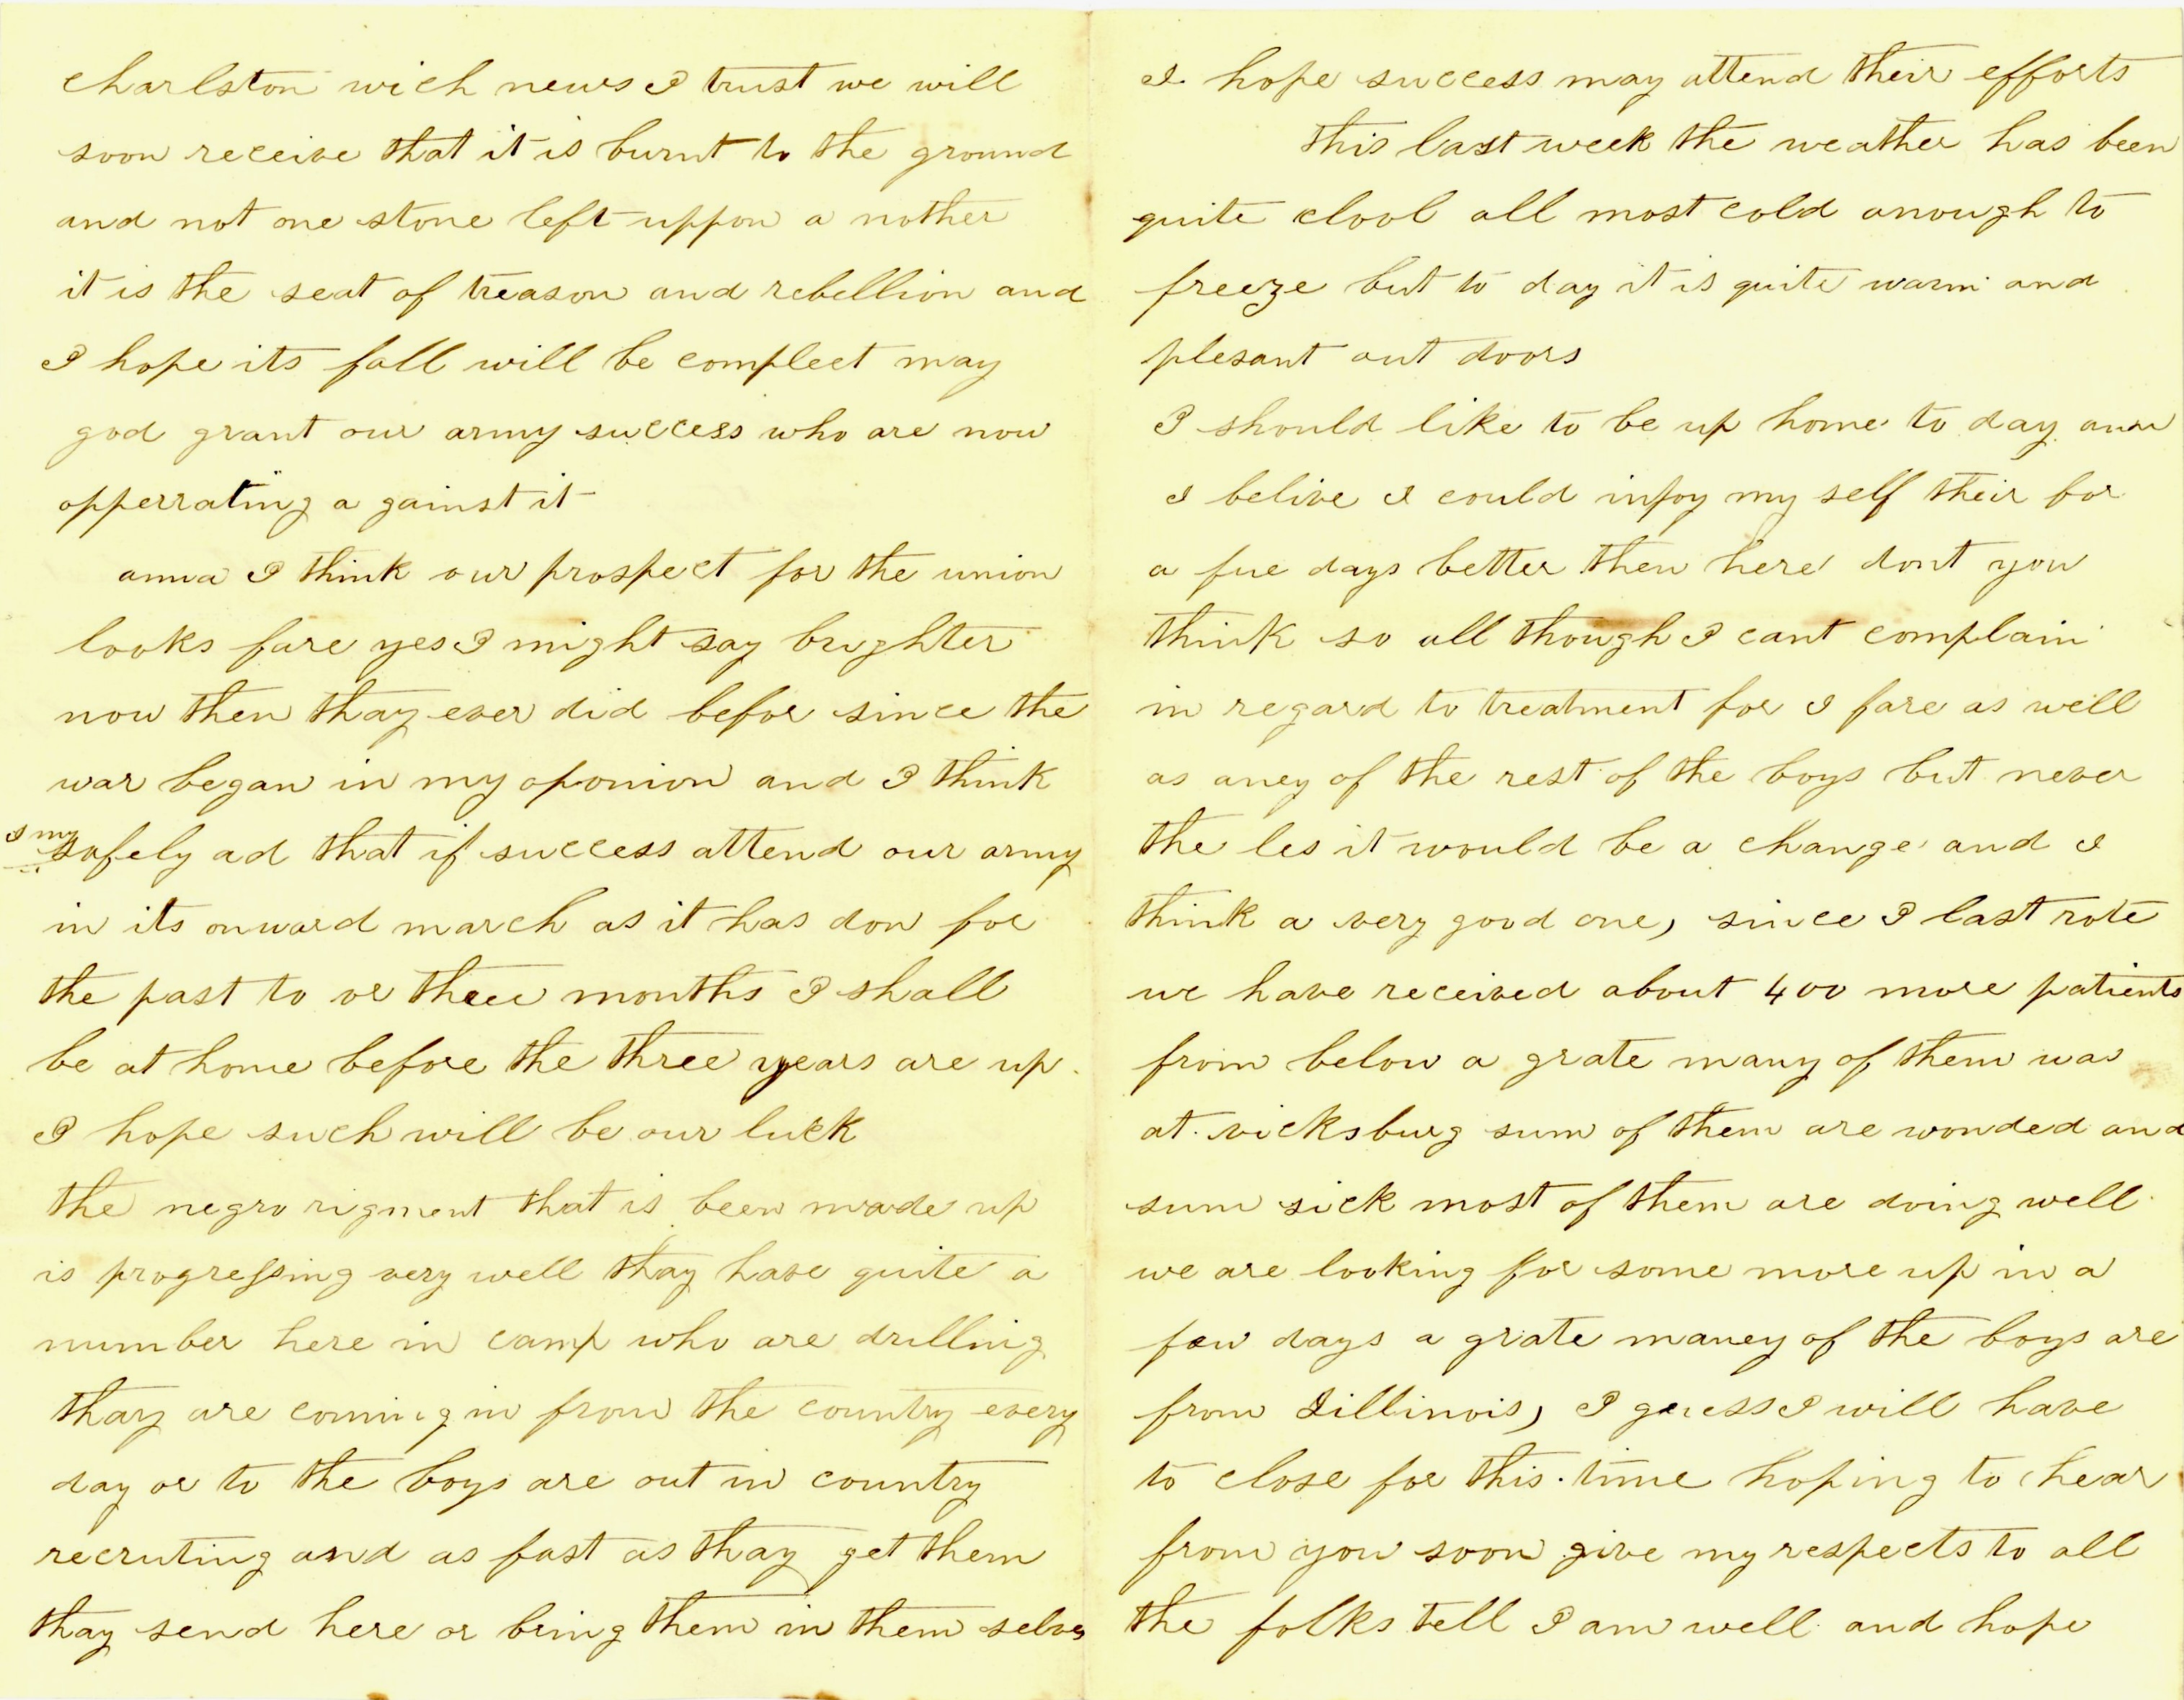 charlston wich news I trust we will
soon receive that it is burnt to the ground
and not one stone left uppon a nother
it is the seat of treason and rebellion and
I hope its fall will be compleet may
god grant our army success who are now
opperrating a gainst it
anna I think our prospect for the union
looks fare yes I might say brighter
now then thay ever did befor since the
war began in my oponion and I think
I my safely ad that if success attend our army
in its onward march as it has don for
the past to or three months I shall
be at home before the three years are up.
I hope such will be our luck
the negro rigment that is been made up
is progressing very well thay have quite a
number here in camp who are drilling
thay are coming in from the country every
day or to the boys are out in country
recruting and as fast as thay get them
thay send here or bring them in them selves
I hope success may attend their efforts
this last week the weather has been
quite clool all most cold anough to
freeze but to day it is quite warm and
plesant out doors
I should like to be up home to day ann
I belive I could injoy my self their for
a fue days better then here dont you
think so all though I cant complain
in regard to treatment for I fare as well
as aney of the rest of the boys but never
the les it would be a change and I
think a very good one, since I last rote
we have received about 400 more patients
from below a grate many of them was
at vicksburg sum of them are wonded and
sum sick most of them are doing well
we are looking for some more up in a
few days a grate maney of the boys are
from Iillinois, I guess I will have
to close for this time hoping to hear
from you soon give my respects to all
the folks tell I am well and hope